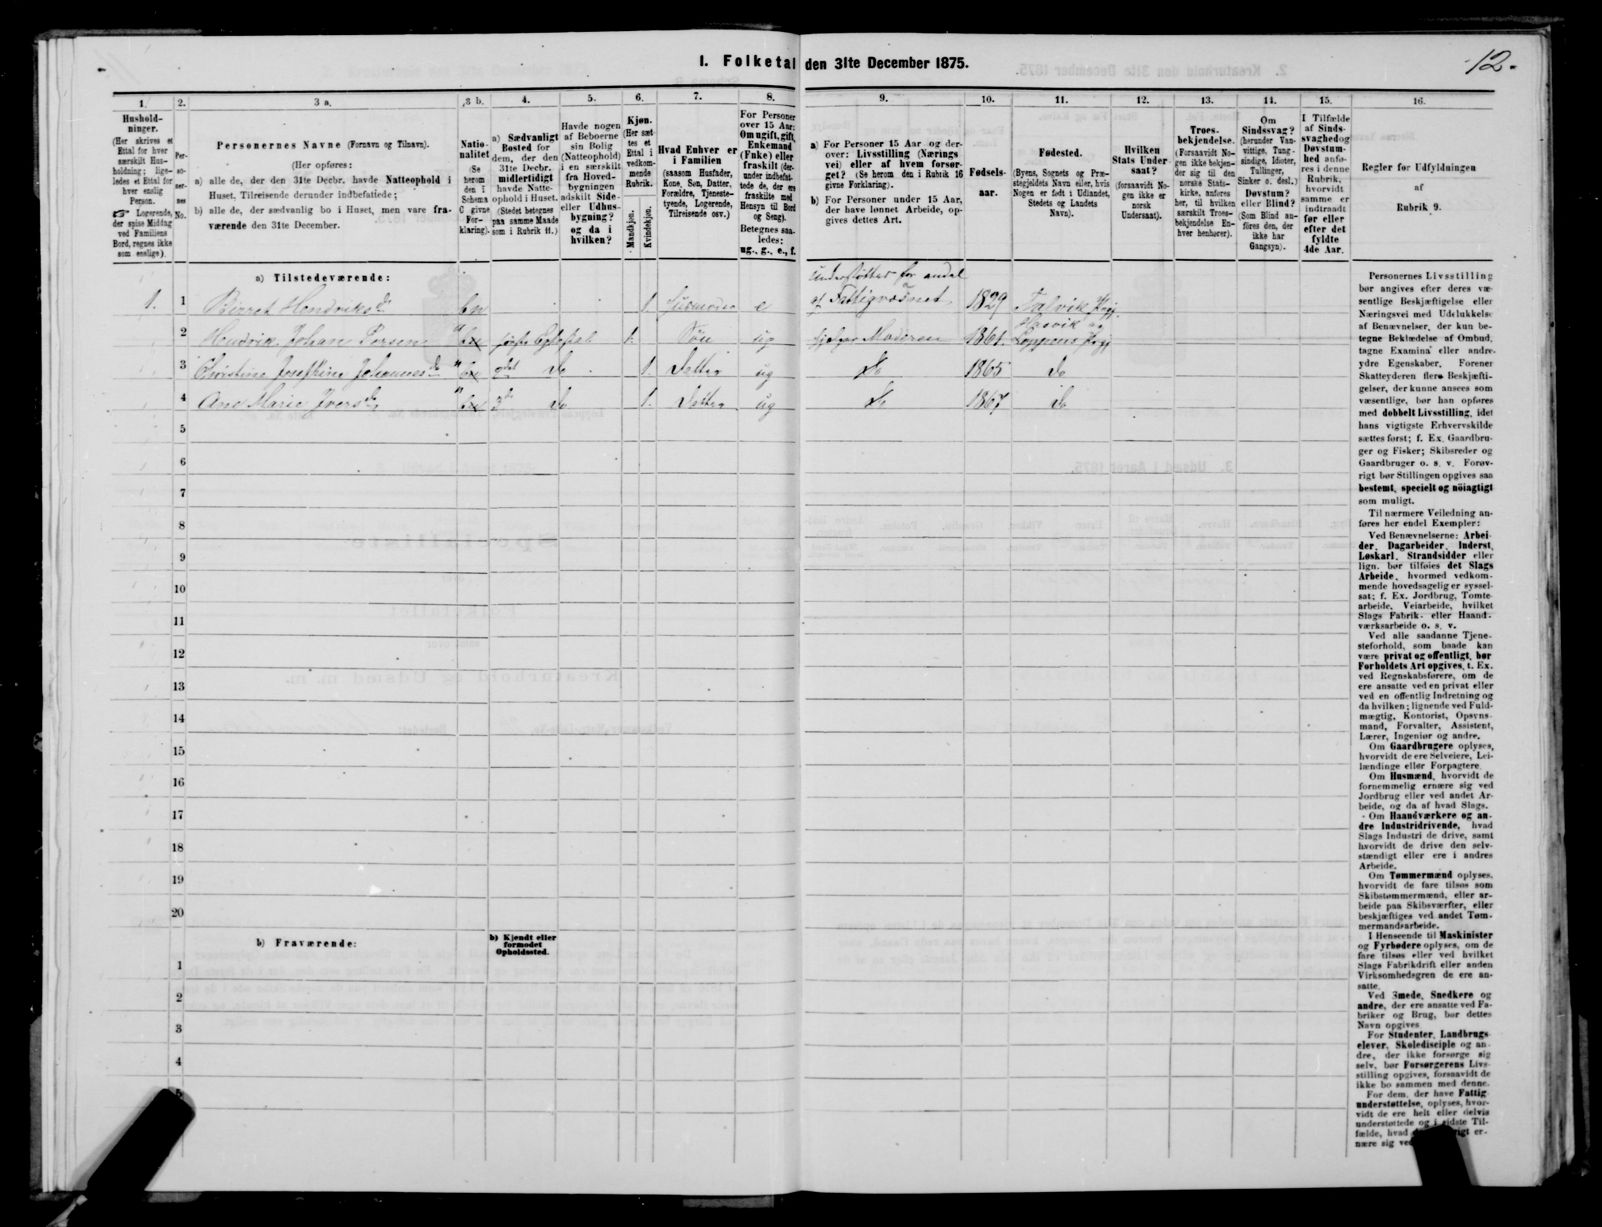 12.
I. Folketal den 31te December 1875.
1. 2. 3 a. 3 b. 4. 5. 6. 7. 8. 9. 10. 11. 12. 13. 14. 15. 16.
Hushold-
ninger.
(Her skrives et
Ettal for hver
særskilt Hus-
holdning; lige-
ledes et Ettal for
hver enslig
Person.
☞ Logerende,
der spise Middag
ved Familiens
Bord, regnes ikke
som enslige).
Per-
so-
ner-
nes
No.
Personernes Navne (Fornavn og Tilnavn).
(Her opføres:
a) alle de, der den 31te Decbr. havde Natteophold i
Huset, Tilreisende derunder indbefattede;
b) alle de, der sædvanlig bo i Huset, men vare fra-
værende den 31te December.
Natio-
nalitet
(Se
herom
den i
Schema
C givne
For-
klaring).
a) Sædvanligt
Bosted for
dem, der den
31te Decbr.
midlertidigt
havde Natte-
ophold i Huset.
(Stedet betegnes
paa samme Maade
som i Rubrik 11.)
Havde nogen
af Beboerne
sin Bolig
(Natteophold)
i en særskilt
fra Hoved-
bygningen
adskilt Side-
eller Udhus-
bygning?
og da i
hvilken?
Kjøn.
(Her sæt-
tes et
Ettal i
vedkom-
mende
Rubrik.
Mandkjøn.
Kvindekjøn.
Hvad Enhver er
i Familien
(saasom Husfader,
Kone, Søn, Datter,
Forældre, Tjeneste-
tyende, Logerende,
Tilreisende osv.)
For Personer
over 15 Aar:
Om ugift, gift,
Enkemand
(Enke) eller
fraskilt (der-
under indbefat-
tede de, der ere
fraskilte med
Hensyn til Bord
og Seng).
Betegnes saa-
ledes:
ug., g., e., f.
a) For Personer 15 Aar og der-
over: Livsstilling (Nærings
vei) eller af hvem forsør-
get? (Se herom den i Rubrik 16
givne Forklaring).
b) For Personer under 15 Aar,
der have lønnet Arbeide, op-
gives dettes Art.
Fødsels-
aar.
Fødested.
(Byens, Sognets og Præ-
stegjeldets Navn eller, hvis
Nogen er født i Udlandet,
Stedets og Landets
Navn).
Hvilken
Stats Under-
saat?
(forsaavidt No-
gen ikke er
norsk
Undersaat).
Troes-
bekjendelse.
(Forsaavidt No-
gen ikke bekjen-
der sig til den
norske Stats-
kirke, anføres
her, til hvilken
særskilt Troes-
bekjendelse En-
hver henhører).
Om
Sindssvag?
(herunder Van-
vittige, Tung-
sindige, Idioter,
Tullinger,
Sinker o. desl.)
Døvstum?
eller Blind?
(Som Blind an-
føres den, der
ikke har
Gangsyn).
I Tilfælde
af Sinds-
svaghed og
Døvstum-
hed anfø-
res i denne
Rubrik,
hvorvidt
samme er
indtraadt
før eller
efter det
fyldte
4de Aar.
Regler for Udfyldningen
af
Rubrik 9.
a) Tilstedeværende:
understøttes for andel
1. 1 Birret Hendriksdr bn 1 Husmoder e af Fattigvæsnet 1829 Talvik Prgj.
2 Hendrik Johan Persen " bn 1. Søn ug hjelper Moderen 1861 Hasvik og Loppens Prgj
3 Christine Josefhine Johannesdr " bn do 1. Datter ug do 1865 do
4 Ane Marie Iversdr " bn 3de do 1. Datter ug do 1867 do
5
6
7
8
9
10
11
12
13
14
15
16
17
18
19
20
b) Fraværende:
b) Kjendt eller
formodet
Opholdssted.
1
2
3
4
Personernes Livsstilling
bør angives efter deres væ-
sentlige Beskjæftigelse eller
Næringsvei med Udelukkelse
af Benævnelser, der kun be-
tegne Beklædelse af Ombud,
tagne Examina eller andre
ydre Egenskaber. Forener
Skatteyderen flere Beskjæfti-
gelser, der kunne ansees som
væsentlige, bør han opføres
med dobbelt Livsstilling, idet
hans vigtigste Erhvervskilde
sættes først; f. Ex. Gaardbru-
ger og Fisker; Skibsreder og
Gaardbruger o. s. v. Forøv-
rigt bør Stillingen opgives saa
bestemt, specielt og nöiagtigt
som muligt.
Til nærmere Veiledning an-
føres her endel Exempler:
Ved Benævnelserne: Arbei-
der, Dagarbeider, Inderst,
Løskarl, Strandsidder eller
lign. bør tilføies det Slags
Arbeide, hvormed vedkom-
mende hovedsagelig er syssel-
sat; f. Ex. Jordbrug, Tomte-
arbeide, Veiarbeide, hvilket
Slags Fabrik- eller Haand-
værksarbeide o. s. v.
Ved alle saadanne Tjene-
steforhold, som baade kan
være privat og offentligt, bør
Forholdets Art opgives, t. Ex.
ved Regnskabsførere, om de
ere ansatte ved en privat eller
ved en offentlig Indretning og
da hvilken; lignende ved Fuld-
mægtig, Kontorist, Opsyns-
mand, Forvalter, Assistent,
Lærer, Ingeniør og andre.
Om Gaardbrugere oplyses,
hvorvidt de ere Selveiere, Lei-
lændinge eller Forpagtere.
Om Husmænd, hvorvidt de
fornemmelig ernære sig ved
Jordbrug eller ved andet Ar-
beide, og da af hvad Slags.
Om Haandværkere og an-
dre Industridrivende, hvad
Slags Industri de drive, samt
hvorvidt de drive den selv-
stændigt eller ere i andres
Arbeide.
Om Tømmermænd oplyses,
hvorvidt de fare tilsøs som
Skibstømmermænd, eller ar-
beide paa Skibsværfter, eller
beskjæftiges ved andet Tøm-
mermandsarbeide.
I Henseende til Maskinister
og Fyrbødere oplyses, om de
fare tilsøs eller ved hvilket
Slags Fabrikdrift eller anden
Virksomhedsgren de ere an-
satte.
Ved Smede, Snedkere og
andre, der ere ansatte ved Fa-
briker og Brug, bør dettes
Navn opgives
For Studenter, Landbrugs-
elever, Skoledisciple og an-
dre, der ikke forsørge sig
selv, bør Forsørgerens Livs-
stilling opgives, forsaavidt de
ikke bo sammen med denne.
For dem, der have Fattig-
understøttelse, oplyses, hvor-
vidt de ere helt eller delvis
understøttede og i sidste Til-
fælde, hvad
nære sig ved